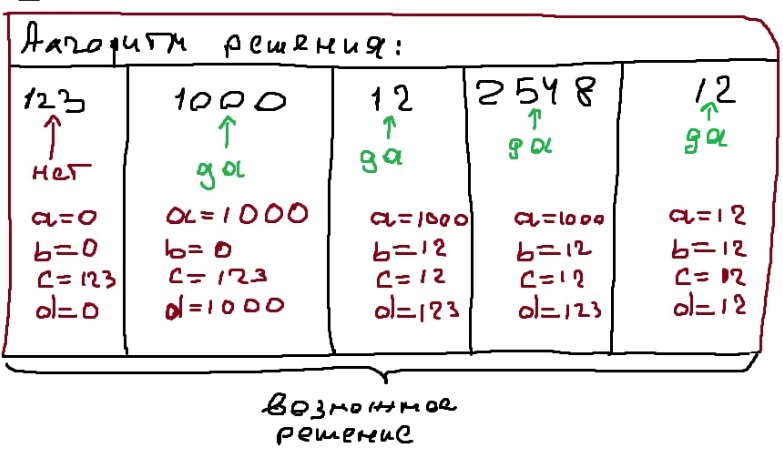 Алгоритм решения:
123 1000 12 2548 12
нет да да да да
a=0 a=1000 a=1000 a=1000 a=12
b=0 b=0 b=12 b=12 b=12
c=123 c=123 c=12 c=12 c=12
d=0 d=1000 d=123 d=123 d=12
возможное
решение